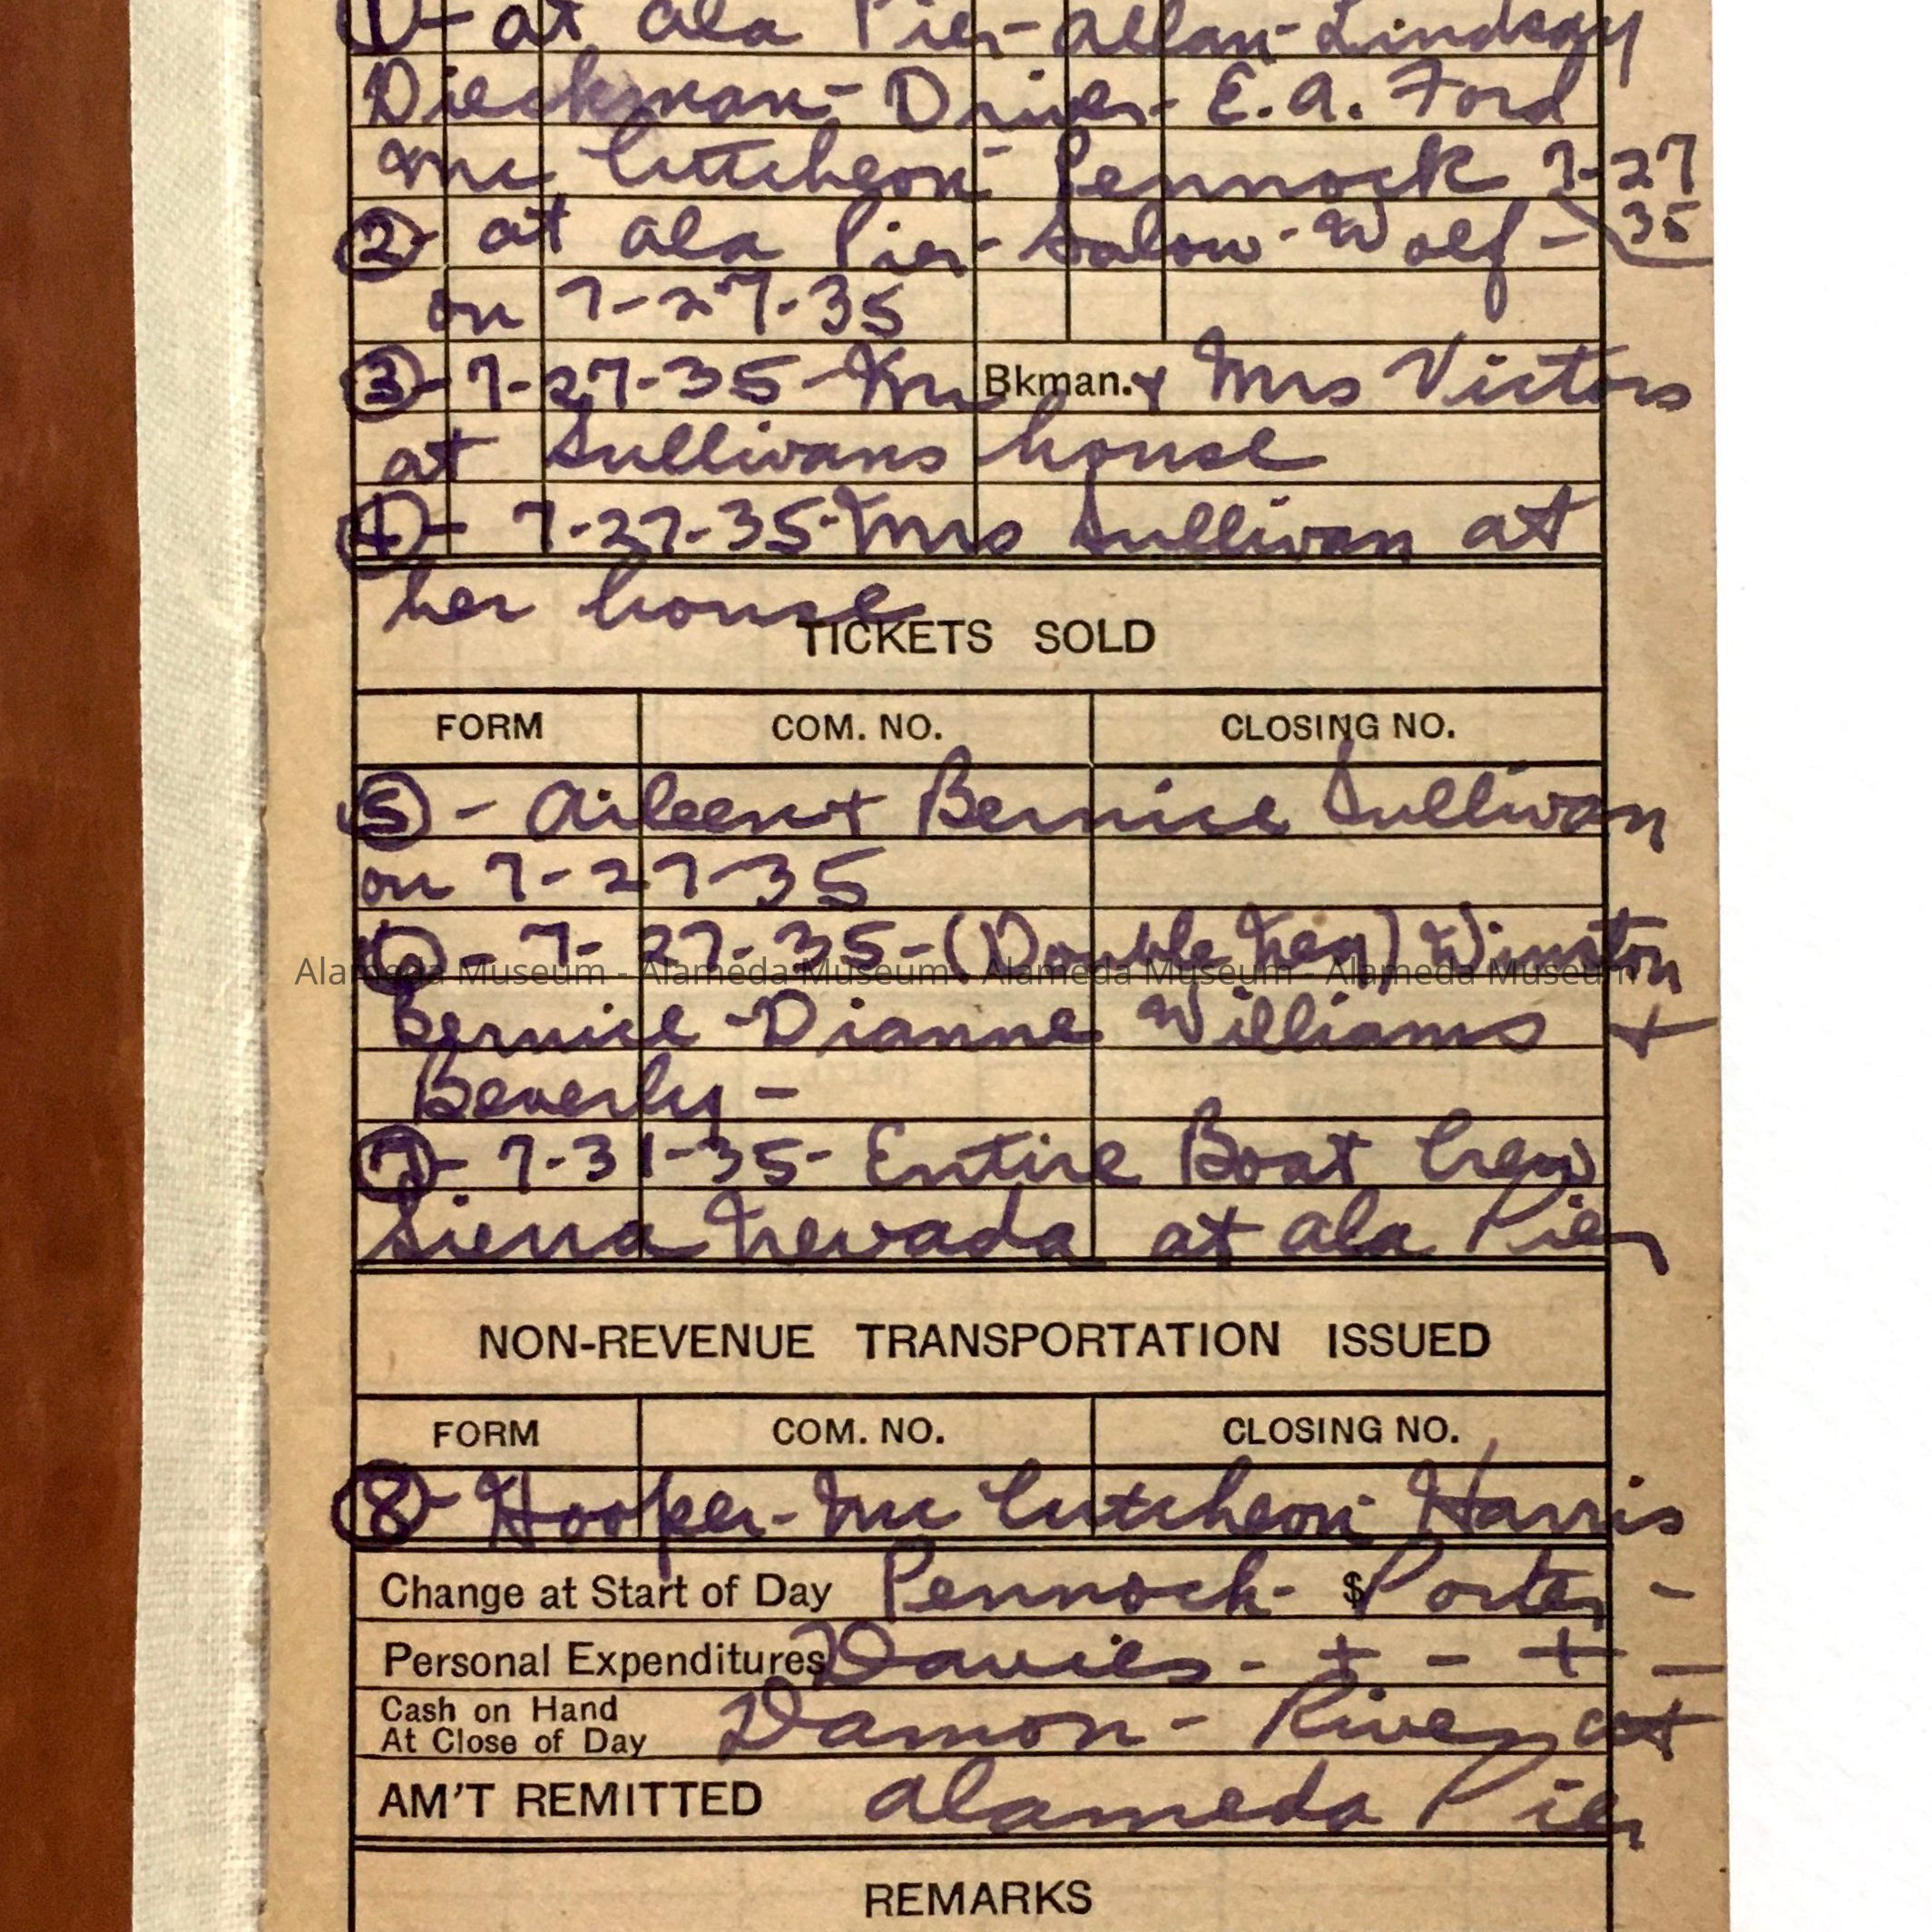 ① - at ala Pier - Allan - Lindsay
Dieckman - Driver - E.A. Ford
Mc Cutcheon - Pennock 7-27
35
② - at ala Pier - Salow - Wolf -
on 7-27-35
③ - 7-27-35 - Mr Bkman. & Mrs Victors
at Sullivans house
④ - 7-27-35 - Mrs Sullivan at
her house
TICKETS SOLD
FORM COM. NO. CLOSING NO.
⑤ - Aileen + Bernice Sullivan
on 7-27-35
⑥ - 7-27-35 - (Double Neg) Winston
Alameda Museum - Alameda Museum - Alameda Museum - Alameda Museum
Bernice - Dianne Williams +
Beverly -
⑦ - 7-31-35 - Entire Boat Crew
Sierra Nevada at ala Pier
NON-REVENUE TRANSPORTATION ISSUED
FORM COM. NO. CLOSING NO.
⑧ - Hooper - Mc Cutcheon - Harris
Change at Start of Day Pennock - $ Porter -
Personal Expenditures Davies - + - + -
Cash on Hand
At Close of Day Damon - River at
AM'T REMITTED Alameda Pier
REMARKS